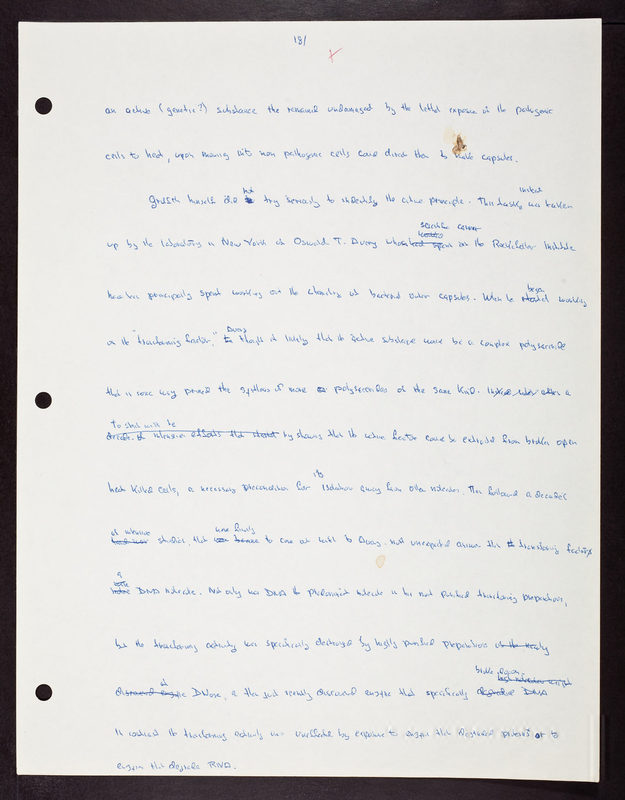 18/
an active (genetic?) substance the remained undamaged by the lethal exposure of the pathogenic
cells to heat, upon moving into non pathogenic cells could direct them to make capsules.
Griffith himself did not try seriously to identify the active principle. This task initial was taken
up by the laboratory in New York of Oswald T. Avery scientific career at the Rockefeller Institute
had been principally spent working out the chemistry of bacterial outer capsules. When he began working
on the "transforming factor," Avery thought it likely that its active substance would be a complex polysaccharide
that in some way primed the synthesis of more polysaccharides of the same kind. a
To start with he by showing that the active factor could be extracted from broken open
heat killed cells, a necessary precondition for its isolation away from other molecules. Then followed a decade
of intensive studies, that were finally to come out with to Avery. most unexpected answer this transforming factor
a DNA molecule. Not only was DNA the predominant molecule in his most purified transforming preparations,
but the transforming activity was specifically destroyed by highly purified preparations
of DNase, a then just recently discovered enzyme that specifically breaks down DNA
In contrast the transforming activity was unaffected by exposure to enzymes that degraded proteins or to
enzymes that degrade RNA.